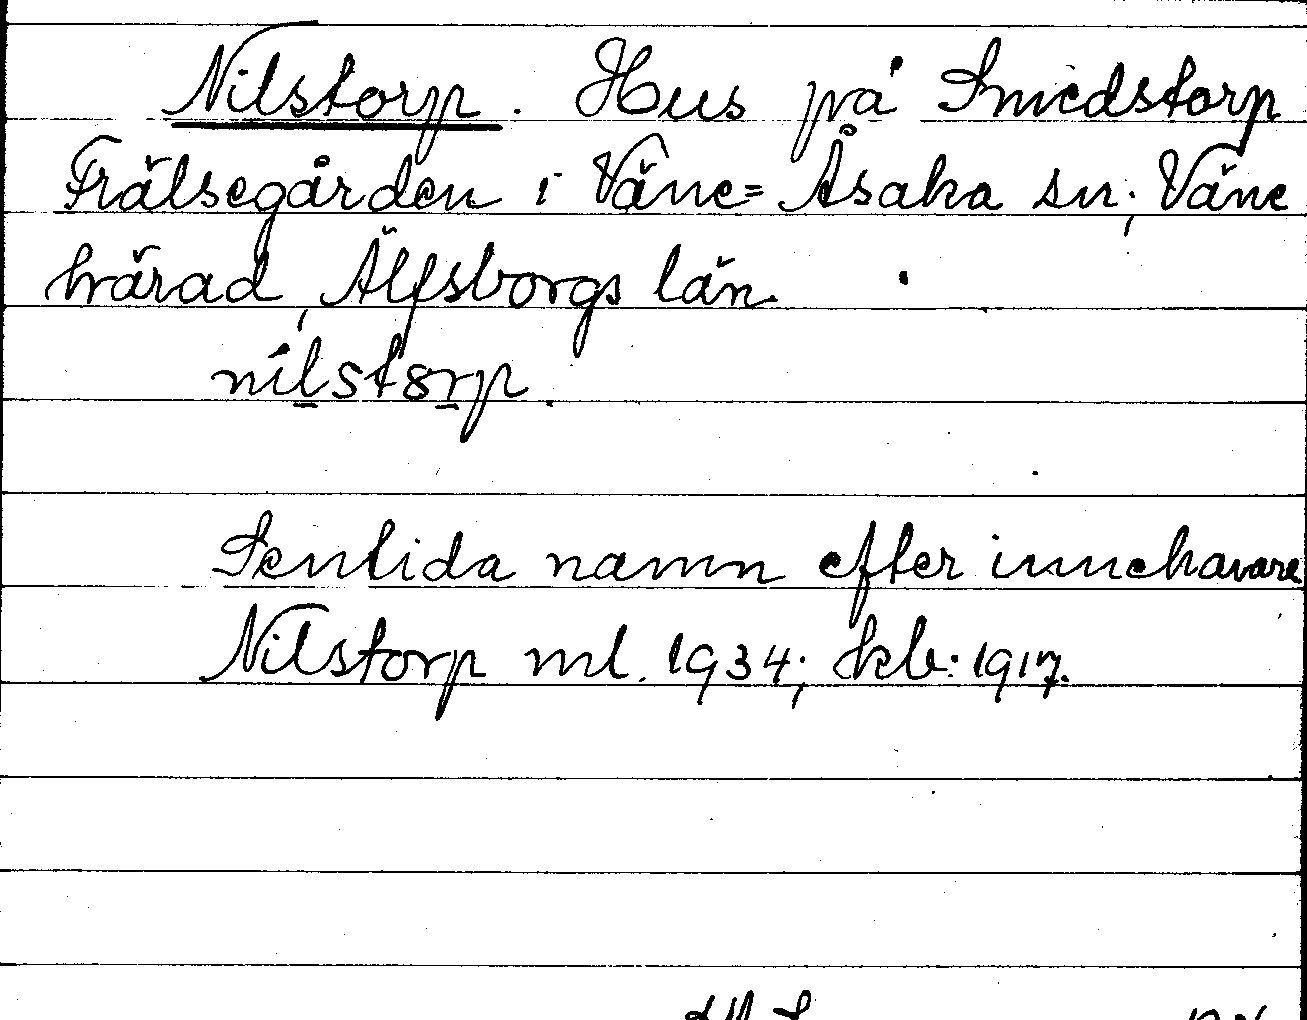 Nilstorp. Hus på Smedstorp
Frälsegården i Väne= Åsaka sn; Väne
härad, Älfsborgs län.
nilstorp.
Sentida namn efter innehavare
Nilstorp ml. 1934; kb: 1917.